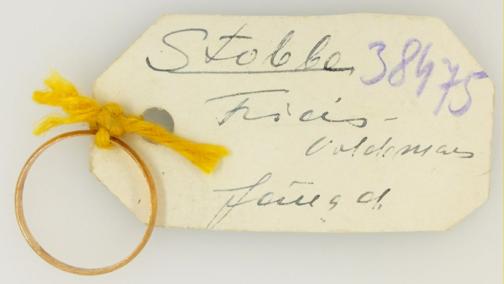 Stobbe 38475
Fricis-
Voldemars
Jāņa d.